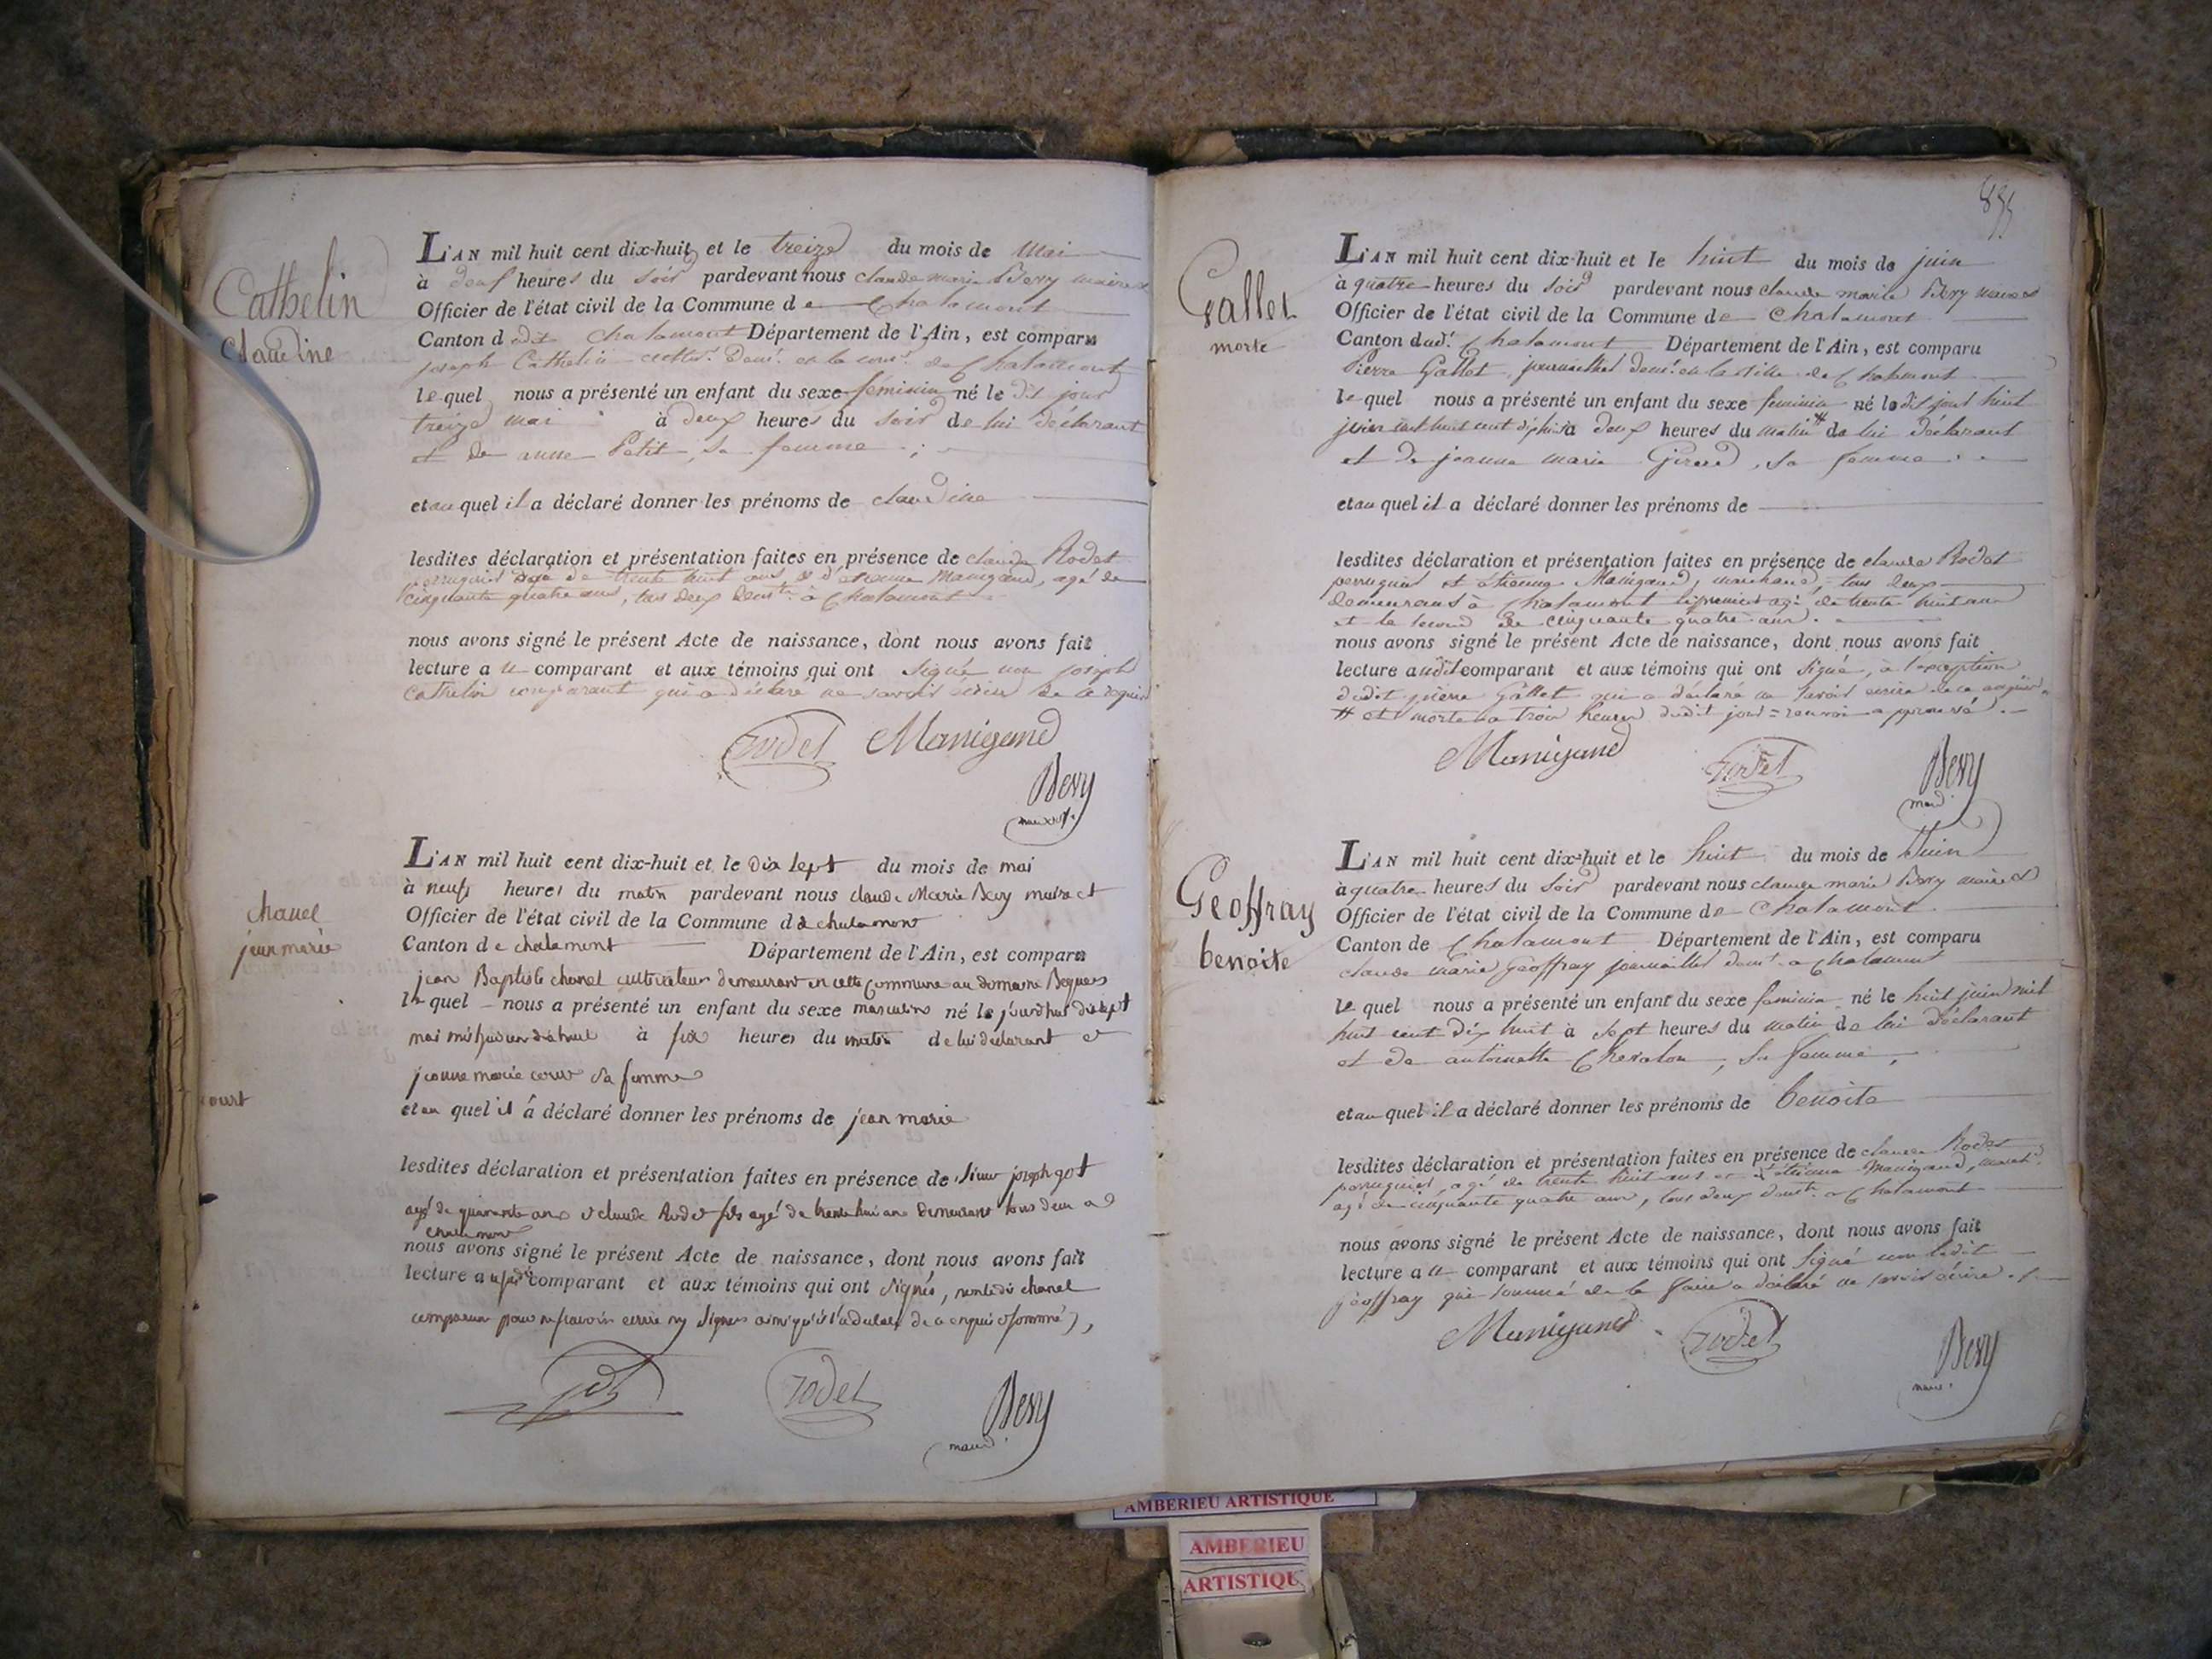 Cathelin
Claudine
L'AN mil huit cent dix-huit et le treize du mois de Mai
à heures du soir pardevant nous claude marie Bevy maire et
Officier de l'état civil de la Commune de Chalamont
Canton dudit Chalamont Département de l'Ain, est comparu
joseph Cathelin cultr. demt. en la comt. de Chalamont
lequel nous a présenté un enfant du sexe féminin né le dit jour
treize mai à deux heures du soir de lui déclarant
et de anne Petit, sa femme ;
et au quel il a déclaré donner les prénoms de claudine
lesdites déclaration et présentation faites en présence de claude Rodet
perruquier agé de trente huit ans & d'étienne Manigand, agé de
cinquante quatre ans, tous deux demts. à Chalamont
nous avons signé le présent Acte de naissance, dont nous avons fait
lecture au comparant et aux témoins qui ont signé non joseph
Cathelin comparant qui a déclaré ne savoir écrire de ce requis
Rodet Manigand
Bevy
maire
chanel
jean marie
L'AN mil huit cent dix-huit et le dix sept du mois de mai
à neuf heures du matin pardevant nous claude Marie Bevy maire et
Officier de l'état civil de la Commune de chalamont
Canton de chalamont Département de l'Ain, est comparu
jean Baptiste chanel cultivateur demeurant en cette Commune au domaine
lequel nous a présenté un enfant du sexe masculin né le jourd'hui dix sept
mai à six heures du matin de lui déclarant et
jeanne marie sa femme
et au quel il à déclaré donner les prénoms de jean marie
lesdites déclaration et présentation faites en présence de sieur joseph got
agé de quarante ans et claude Rodet fils agé de trente huit ans demeurant tous deux a
chalamont
nous avons signé le présent Acte de naissance, dont nous avons fait
lecture au comparant et aux témoins qui ont signés, non ledit chanel
comparant pour ne savoir écrire ny signer ainsi qu'il l'a déclaré de ce enquis et sommé,
got Rodet Bevy
maire
855
Gallet
morte
L'AN mil huit cent dix-huit et le huit du mois de juin
à quatre heures du soir pardevant nous claude marie Bevy maire et
Officier de l'état civil de la Commune de Chalamont
Canton dud. Chalamont Département de l'Ain, est comparu
Pierre Gallet, journaillier demt. en la ville de Chalamont
lequel nous a présenté un enfant du sexe feminin né le dit jour huit
juin mil huit cent dix huit à deux heures du matin # de lui déclarant
et de jeanne marie Girerd, sa femme
et au quel il a déclaré donner les prénoms de
lesdites déclaration et présentation faites en présence de claude Rodet
perruquier et étienne Manigand, marchand, tous deux
demeurans à Chalamont le premier agé de trente huit ans
et le second de cinquante quatre ans.
nous avons signé le présent Acte de naissance, dont nous avons fait
lecture audit comparant et aux témoins qui ont signé, à l'exception
dudit pierre Gallet qui a déclaré ne savoir écrire de ce enquis
# et morte a trois heures dudit jour = renvoi approuvé.
Manigand Rodet Bevy
maire
Geoffray
benoite
L'AN mil huit cent dix-huit et le huit du mois de Juin
à quatre heures du soir pardevant nous claude marie Bevy maire et
Officier de l'état civil de la Commune de Chalamont
Canton de Chalamont Département de l'Ain, est comparu
claude Marie Geoffray journaillier demt. a Chalamont
lequel nous a présenté un enfant du sexe feminin né le huit juin mil
huit cent dix huit à sept heures du matin de lui déclarant
et de antoinette Chevalon, sa femme,
et au quel il a déclaré donner les prénoms de benoite
lesdites déclaration et présentation faites en présence de claude Rodet
perruquier, agé de trente huit ans et d'étienne Manigand, march.
agé de cinquante quatre ans, tous deux demts. a Chalamont
nous avons signé le présent Acte de naissance, dont nous avons fait
lecture au comparant et aux témoins qui ont signé non ledit
geoffray qui sommé de le faire a déclaré ne savoir écrire.
Manigand Rodet Bevy
maire
AMBERIEU ARTISTIQUE
AMBERIEU
ARTISTIQUE